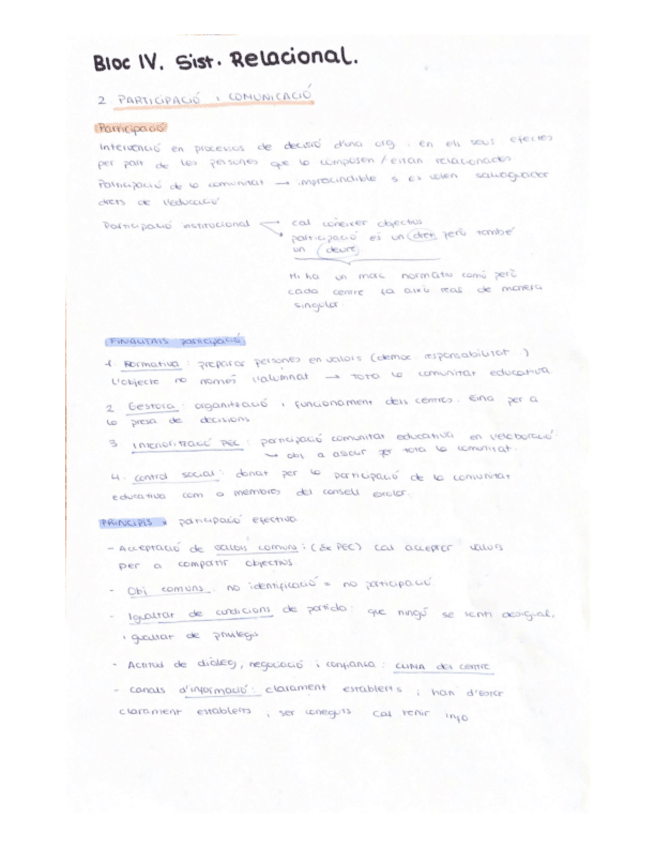 Bloc IV. Sist. Relacional.
2. PARTICIPACIÓ I COMUNICACIÓ
Participació
Intervenció en processos de decisió d'una org. i en els seus efectes
per part de les persones que la composen / estan relacionades
Participació de la comunitat → imprescindible si es volen salvaguardar
drets de l'educació
Participació institucional → cal conèixer objectius
→ participació és un dret però també
un deure
Hi ha un marc normatiu comú però
cada centre fa això real de manera
singular.
FINALITATS participació
1. Formativa: preparar persones en valors (democ. responsabilitat...)
L'objecte no només l'alumnat → tota la comunitat educativa
2. Gestora: organització i funcionament dels centres. Eina per a
la presa de decisions
3. Interiorització PEC: participació comunitat educativa en l'elaboració
→ obj. a assolir per tota la comunitat.
4. control social: donat per la participació de la comunitat
educativa com a membres del consell escolar.
PRINCIPIS participació efectiva
- Acceptació de valors comuns: (Ex PEC) cal acceptar valors
per a compartir objectius.
- Obj. comuns: no identificació = no participació
- Igualtat de condicions de partida: que ningú se senti desigual,
igualtat de privilegis
- Actitud de diàleg, negociació i confiança: CLIMA del centre
- canals d'informació: clarament establerts i han d'estar
clarament establerts i ser coneguts. Cal tenir info